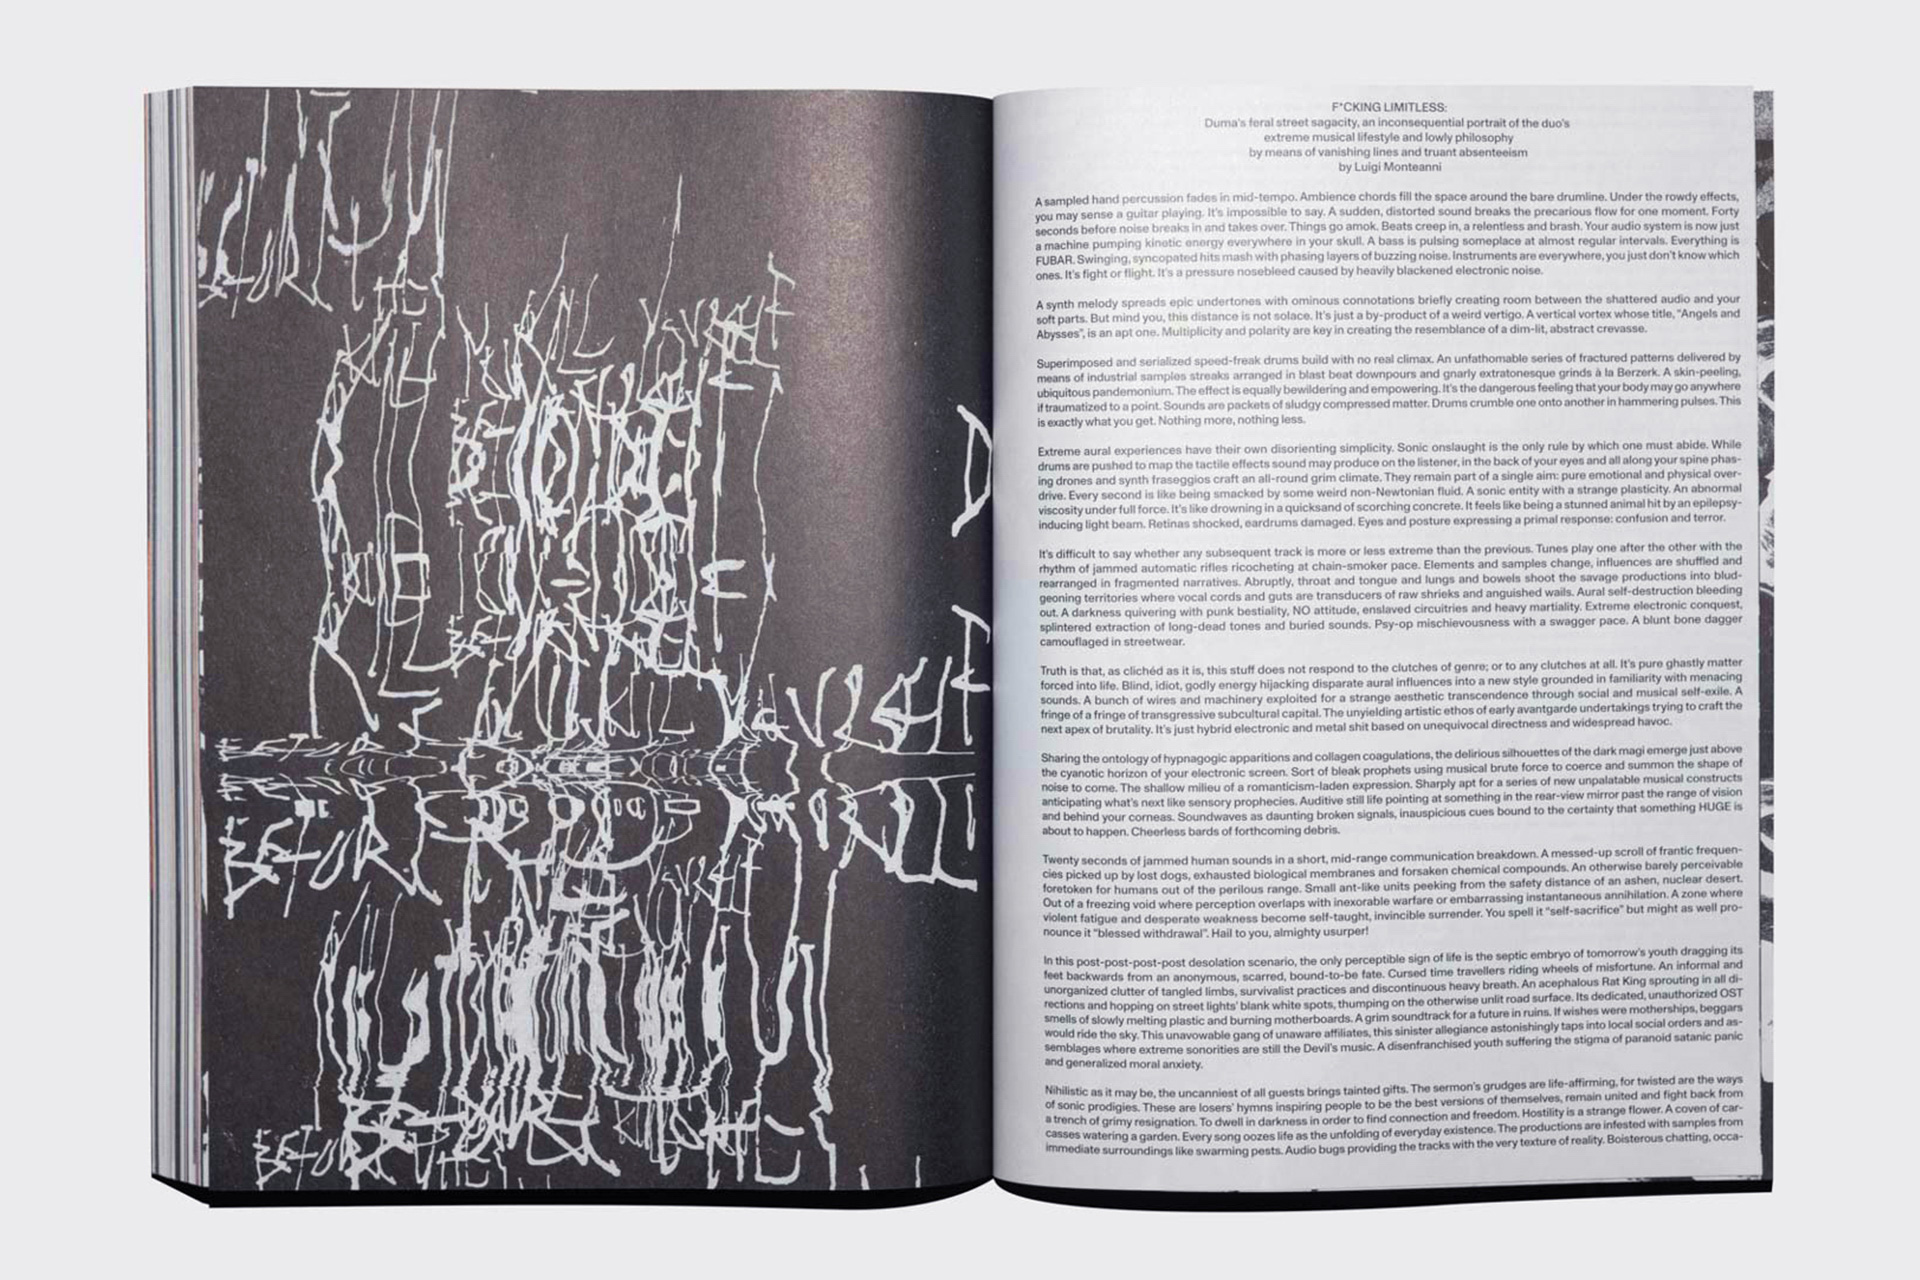 F*CKING LIMITLESS:
Duma's feral street sagacity, an inconsequential portrait of the duo's
extreme musical lifestyle and lowly philosophy
by means of vanishing lines and truant absenteeism
by Luigi Monteanni
A sampled hand percussion fades in mid-tempo. Ambience chords fill the space around the bare drumline. Under the rowdy effects,
you may sense a guitar playing. It's impossible to say. A sudden, distorted sound breaks the precarious flow for one moment. Forty
seconds before noise breaks in and takes over. Things go amok. Beats creep in, a relentless and brash. Your audio system is now just
a machine pumping kinetic energy everywhere in your skull. A bass is pulsing someplace at almost regular intervals. Everything is
FUBAR. Swinging, syncopated hits mash with phasing layers of buzzing noise. Instruments are everywhere, you just don't know which
ones. It's fight or flight. It's a pressure nosebleed caused by heavily blackened electronic noise.
A synth melody spreads epic undertones with ominous connotations briefly creating room between the shattered audio and your
soft parts. But mind you, this distance is not solace. It's just a by-product of a weird vertigo. A vertical vortex whose title, "Angels and
Abysses", is an apt one. Multiplicity and polarity are key in creating the resemblance of a dim-lit, abstract crevasse.
Superimposed and serialized speed-freak drums build with no real climax. An unfathomable series of fractured patterns delivered by
means of industrial samples streaks arranged in blast beat downpours and gnarly extratonesque grinds à la Berzerk. A skin-peeling,
ubiquitous pandemonium. The effect is equally bewildering and empowering. It's the dangerous feeling that your body may go anywhere
if traumatized to a point. Sounds are packets of sludgy compressed matter. Drums crumble one onto another in hammering pulses. This
is exactly what you get. Nothing more, nothing less.
Extreme aural experiences have their own disorienting simplicity. Sonic onslaught is the only rule by which one must abide. While
drums are pushed to map the tactile effects sound may produce on the listener, in the back of your eyes and all along your spine phas-
ing drones and synth fraseggios craft an all-round grim climate. They remain part of a single aim: pure emotional and physical over-
drive. Every second is like being smacked by some weird non-Newtonian fluid. A sonic entity with a strange plasticity. An abnormal
viscosity under full force. It's like drowning in a quicksand of scorching concrete. It feels like being a stunned animal hit by an epilepsy-
inducing light beam. Retinas shocked, eardrums damaged. Eyes and posture expressing a primal response: confusion and terror.
It's difficult to say whether any subsequent track is more or less extreme than the previous. Tunes play one after the other with the
rhythm of jammed automatic rifles ricocheting at chain-smoker pace. Elements and samples change, influences are shuffled and
rearranged in fragmented narratives. Abruptly, throat and tongue and lungs and bowels shoot the savage productions into blud-
geoning territories where vocal cords and guts are transducers of raw shrieks and anguished wails. Aural self-destruction bleeding
out. A darkness quivering with punk bestiality, NO attitude, enslaved circuitries and heavy martiality. Extreme electronic conquest,
splintered extraction of long-dead tones and buried sounds. Psy-op mischievousness with a swagger pace. A blunt bone dagger
camouflaged in streetwear.
Truth is that, as clichéd as it is, this stuff does not respond to the clutches of genre; or to any clutches at all. It's pure ghastly matter
forced into life. Blind, idiot, godly energy hijacking disparate aural influences into a new style grounded in familiarity with menacing
sounds. A bunch of wires and machinery exploited for a strange aesthetic transcendence through social and musical self-exile. A
fringe of a fringe of transgressive subcultural capital. The unyielding artistic ethos of early avantgarde undertakings trying to craft the
next apex of brutality. It's just hybrid electronic and metal shit based on unequivocal directness and widespread havoc.
Sharing the ontology of hypnagogic apparitions and collagen coagulations, the delirious silhouettes of the dark magi emerge just above
the cyanotic horizon of your electronic screen. Sort of bleak prophets using musical brute force to coerce and summon the shape of
noise to come. The shallow milieu of a romanticism-laden expression. Sharply apt for a series of new unpalatable musical constructs
anticipating what's next like sensory prophecies. Auditive still life pointing at something in the rear-view mirror past the range of vision
and behind your corneas. Soundwaves as daunting broken signals, inauspicious cues bound to the certainty that something HUGE is
about to happen. Cheerless bards of forthcoming debris.
Twenty seconds of jammed human sounds in a short, mid-range communication breakdown. A messed-up scroll of frantic frequen-
cies picked up by lost dogs, exhausted biological membranes and forsaken chemical compounds. An otherwise barely perceivable
foretoken for humans out of the perilous range. Small ant-like units peeking from the safety distance of an ashen, nuclear desert.
Out of a freezing void where perception overlaps with inexorable warfare or embarrassing instantaneous annihilation. A zone where
violent fatigue and desperate weakness become self-taught, invincible surrender. You spell it "self-sacrifice" but might as well pro-
nounce it "blessed withdrawal". Hail to you, almighty usurper!
In this post-post-post-post desolation scenario, the only perceptible sign of life is the septic embryo of tomorrow's youth dragging its
feet backwards from an anonymous, scarred, bound-to-be fate. Cursed time travellers riding wheels of misfortune. An informal and
unorganized clutter of tangled limbs, survivalist practices and discontinuous heavy breath. An acephalous Rat King sprouting in all di-
rections and hopping on street lights' blank white spots, thumping on the otherwise unlit road surface. Its dedicated, unauthorized OST
smells of slowly melting plastic and burning motherboards. A grim soundtrack for a future in ruins. If wishes were motherships, beggars
would ride the sky. This unavowable gang of unaware affiliates, this sinister allegiance astonishingly taps into local social orders and as-
semblages where extreme sonorities are still the Devil's music. A disenfranchised youth suffering the stigma of paranoid satanic panic
and generalized moral anxiety.
Nihilistic as it may be, the uncanniest of all guests brings tainted gifts. The sermon's grudges are life-affirming, for twisted are the ways
of sonic prodigies. These are losers' hymns inspiring people to be the best versions of themselves, remain united and fight back from
a trench of grimy resignation. To dwell in darkness in order to find connection and freedom. Hostility is a strange flower. A coven of car-
casses watering a garden. Every song oozes life as the unfolding of everyday existence. The productions are infested with samples from
immediate surroundings like swarming pests. Audio bugs providing the tracks with the very texture of reality. Boisterous chatting, occa-